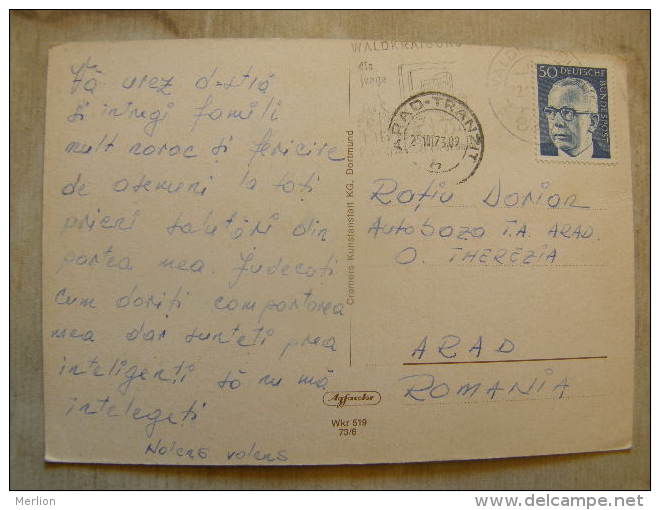 Vă urez d-stră
și intregi familii
mult noroc și fericire
de asemeni la toți
prieni salutări din
partea mea. Judecați
cum doriți comportarea
mea dar sunteți prea
inteligenți să nu mă
intelegeți
Nolens volens
WALDKRAIBURG
die
junge
ARAD-TRANZIT
50 DEUTSCHE BUNDESPOST
Rațiu Dorian
Autobaza T.A. ARAD.
O. THEREZIA
ARAD
ROMANIA
Cramers Kunstanstalt KG, Dortmund
Agfacolor
Wkr 519
73/6
Merlion
www.delcampe.net